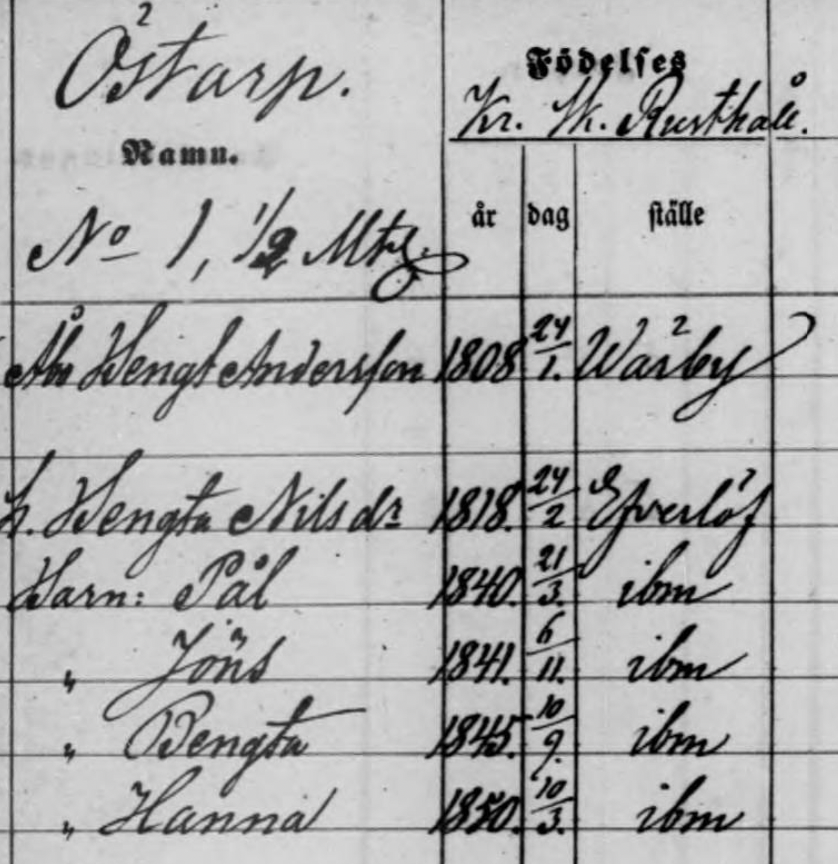 Östarp.
Födelses
Kr. Sk. Rusthåll.
Namn.
år dag ställe
No 1, 1/2 Mtl.
Åbo Bengt Andersson 1808 24/1. Wärby
h. Bengta Nilsdr 1818. 24/2 Efverlöf
Barn: Pål 1840. 21/3. ibm
„ Jöns 1841. 6/11. ibm
„ Bengta 1845. 10/9. ibm
„ Hanna 1850. 10/3. ibm